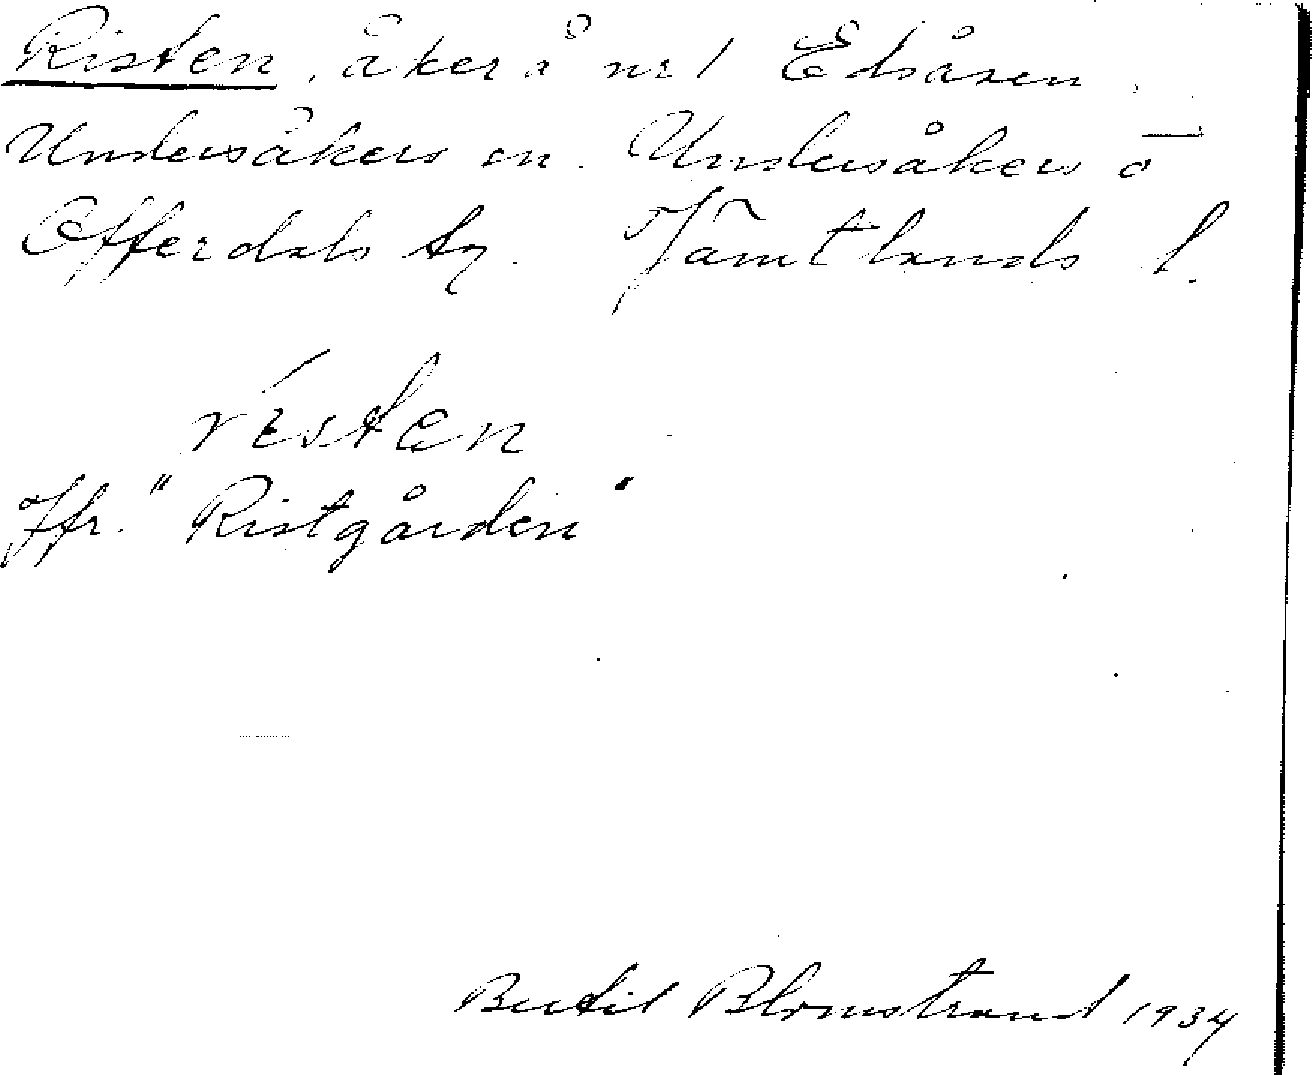 Risten, åker å nr 1 Edsåsen,
Undersåkers sn. Undersåkers o
Offerdals tg. Jämtlands l.
rísten
Jfr. "Ristgården"
Bertil Blomstrand 1934